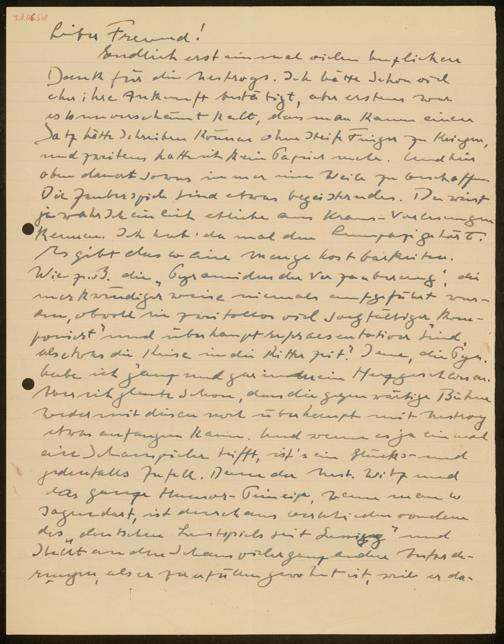 Lieber Freund!
Endlich erst einmal vielen herzlichen
Dank für die Nestroys. Ich hätte schon viel
eher ihre Ankunft bestätigt, aber erstens war
es so unverschämt kalt, dass man kaum einen
Satz hätte schreiben können ohne steife Finger zu kriegen,
und zweitens hatte ich kein Papier mehr. Und hier
oben dauert sowas immer eine Weile zu beschaffen.
Die Zauberspiele sind etwas begeisterndes. Du wirst
ja wahrscheinlich etliche aus Kraus-Vorlesungen
kennen. Ich hab' da mal den Lumpazi gehört.
Es gibt da so eine Menge Kostbarkeiten.
Wie z.B. die „ der Verzauberung", die
merkwürdigerweise niemals aufgeführt wur-
den, obwohl sie zweifellos viel sorgfältiger „kom-
poniert" und überhaupt repraesentativer sind,
als etwa die Reise in die Ritterzeit. Jene, die
habe ich ganz und gar in mein Herz geschlossen.
Aber ich glaube schon, dass die gegenwärtige Bühne
weder mit diesen noch überhaupt mit Nestroy
etwas anfangen kann. Und wenn es ja einmal
ein Schauspieler trifft, ist's ein Glücks- und
jedenfalls Zufall. Denn der Nest. Witz und
das ganze Humor-Prinzip, wenn man so
sagen darf, ist durchaus verschieden von dem
des „deutschen Lustspiels seit Lessing" und
stellt an den Schauspieler ganz andere Anforde-
rungen, als er zu erfüllen gewohnt ist, weil er da-